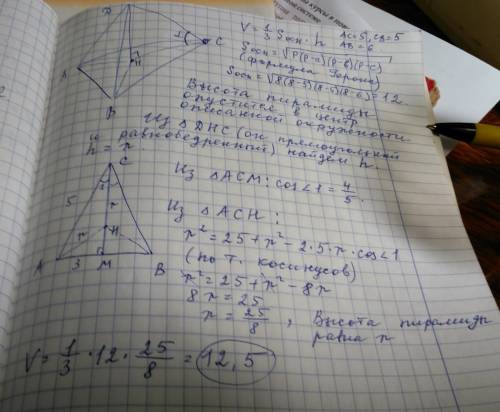 D
A
B
C
H
V = 1/3 Sосн · h
AC=5, CB=5
AB=6
Sосн = √p(p-a)(p-b)(p-c)
(формула Герона)
Sосн = √8(8-5)(8-5)(8-6) = 12.
Высота пирамиды
опустится в центр
описанной окружности.
Из △DHC (он прямоугольный
и равнобедренный) найдем h.
h = r.
C
1
5
r
r
H
A
3
M
B
Из △ACM: cos∠1 = 4/5.
Из △ACH:
r² = 25 + r² - 2·5·r·cos∠1
(по т. косинусов)
r² = 25 + r² - 8r
8r = 25
r = 25/8, Высота пирамиды
равна r
V = 1/3 · 12 · 25/8 = 12,5